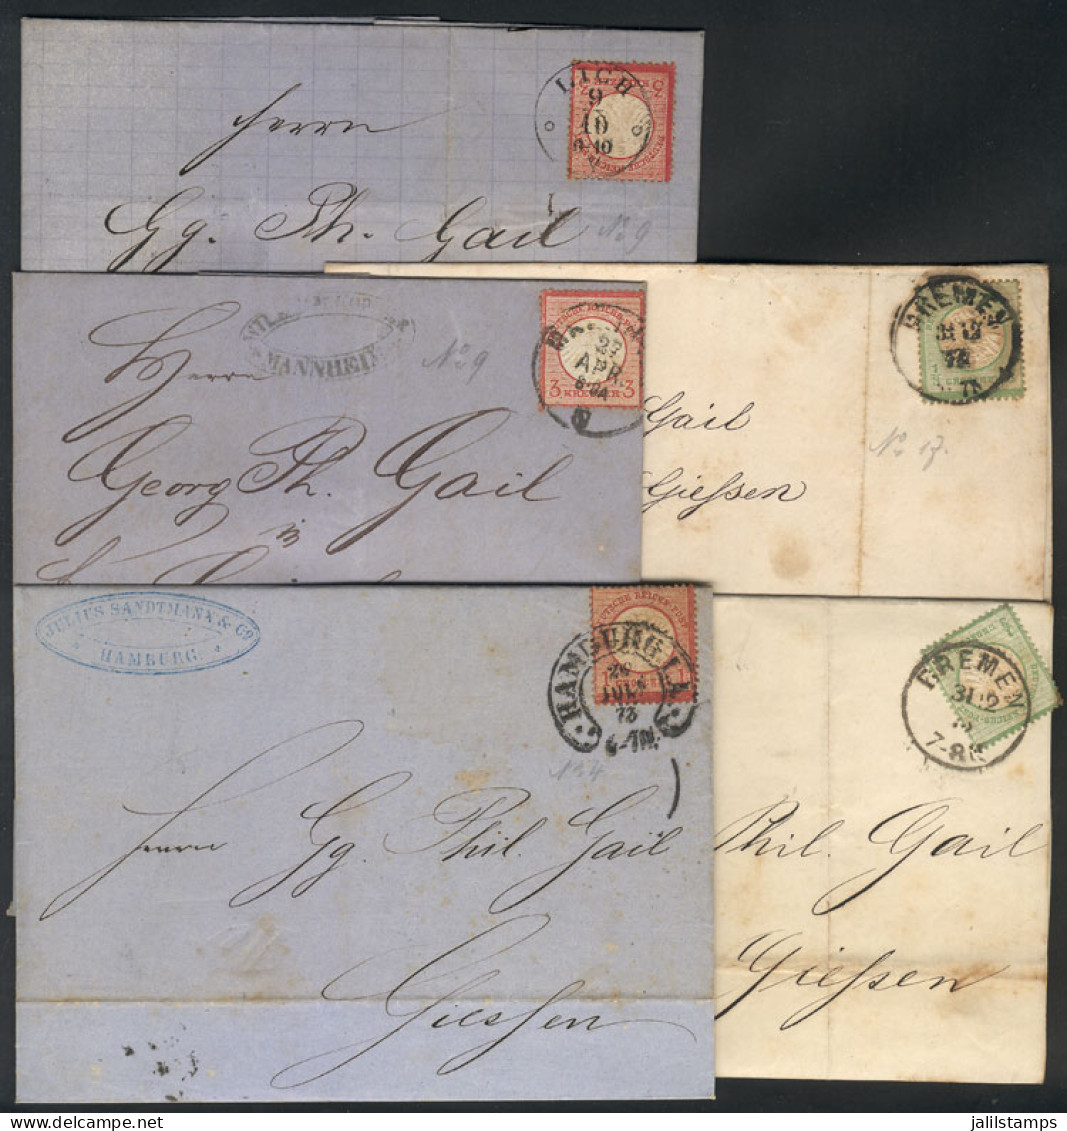 LICH
9
10
9-10
Herrn
Gg. Ph. Gail
No 9
MANNHEIM
23
APR.
3 3
KREUZER
No 9
Herrn
Georg Ph. Gail
in
BREMEN
No 17.
Gail
Giessen
JULIUS SANDTMANN & Co
HAMBURG.
HAMBURG I.A.
26
JULI
73
No 4
Herrn Gg. Phil. Gail
Giessen
BREMEN
31 12
Phil. Gail
Giessen
jalilstamps